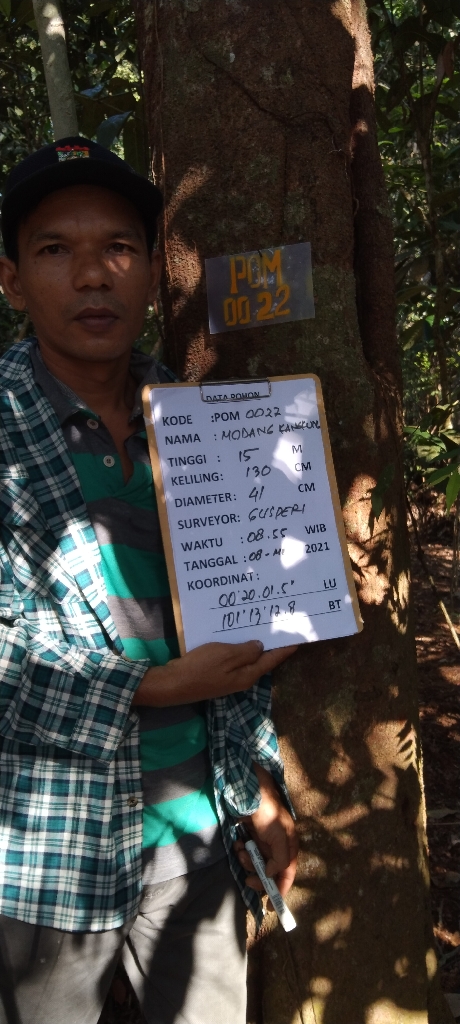 POM
0022
DATA POHON
KODE :POM 0022
NAMA : MODANG KANGKUNG
TINGGI : 15 M
KELILING: 130 CM
DIAMETER: 41 CM
SURVEYOR: GUSPERI
WAKTU : 08.55 WIB
TANGGAL : 08 - 2021
KOORDINAT :
00°20'01.5" LU
101°13'12.8 BT